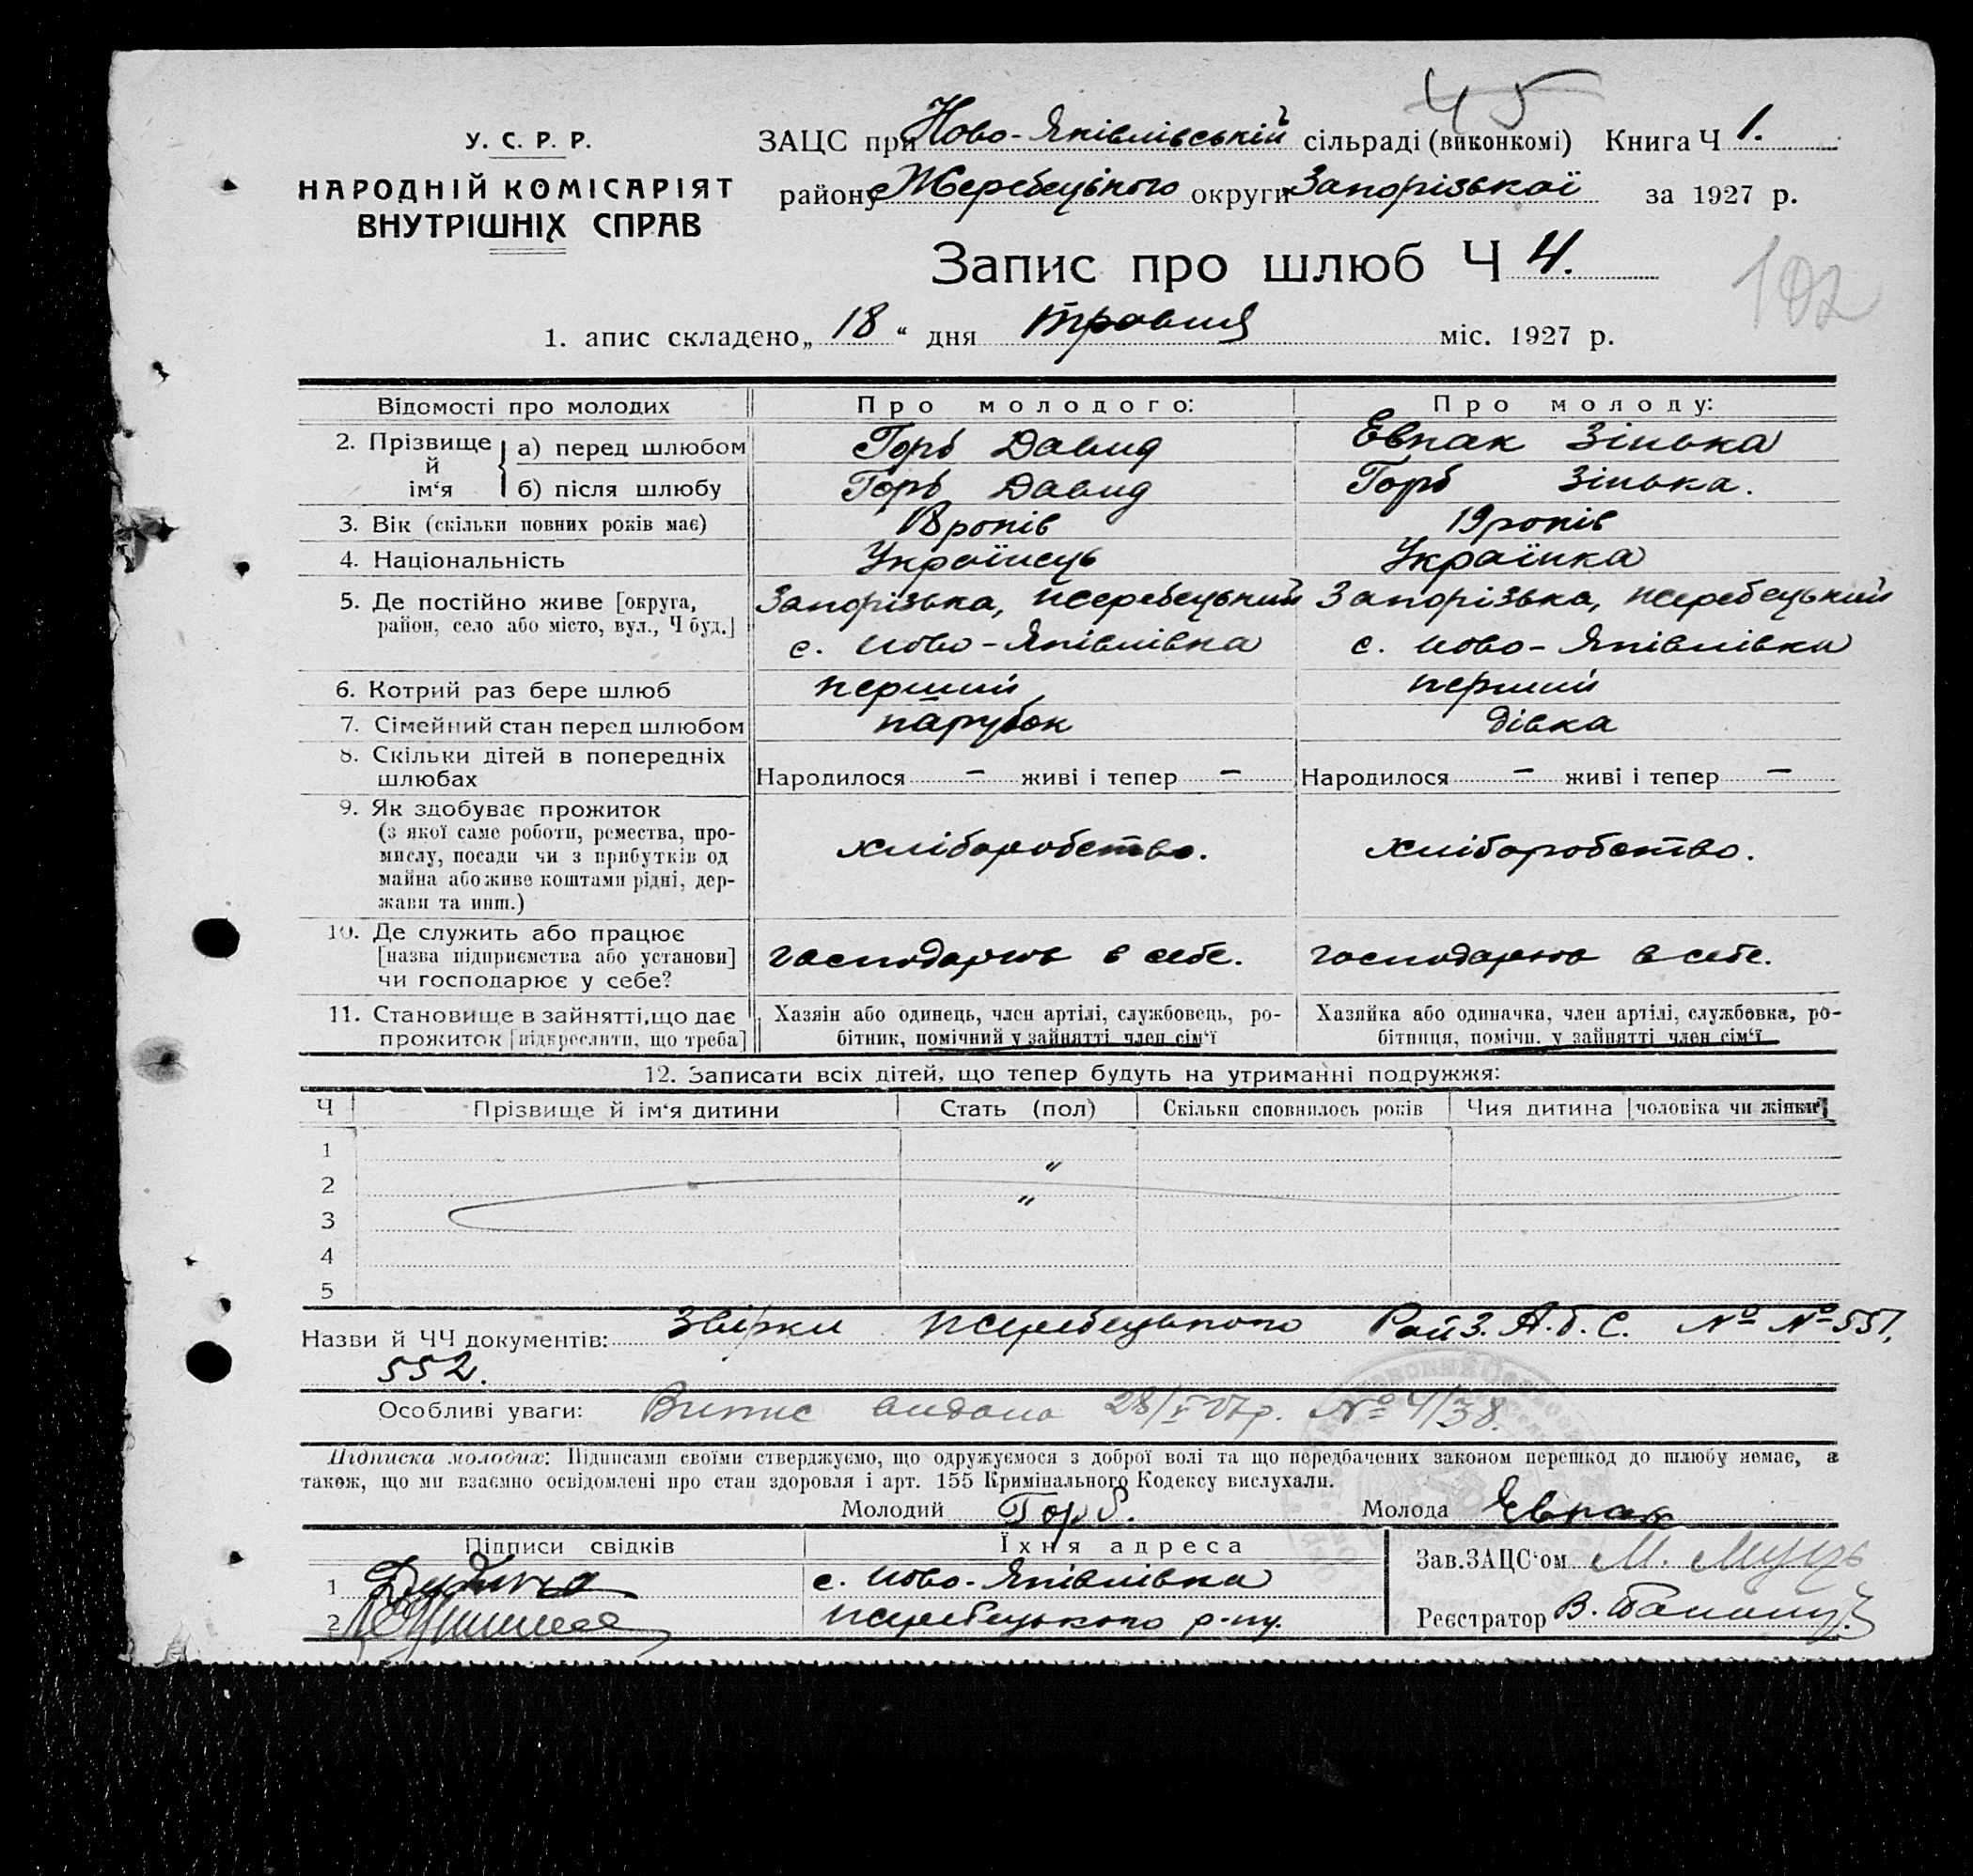 45
У. С. Р. Р.
НАРОДНІЙ КОМІСАРІЯТ
ВНУТРІШНІХ СПРАВ
ЗАЦС при Ново-Яківлівській сільраді (виконкомі) Книга Ч 1.
району Жеребецького округи Запорізької за 1927 р.
Запис про шлюб Ч 4.
102
1. апис складено „ 18 “ дня травня міс. 1927 р.
Відомості про молодих Про молодого: Про молоду:
2. Прізвище й ім‘я а) перед шлюбом Горб Давид Евпак Зінька
б) після шлюбу Горб Давид Горб Зінька.
3. Вік (скільки повних років має) 18 років 19 років
4. Національність Українець Українка
5. Де постійно живе [округа, Запорізька, Жеребецький Запорізька, Жеребецький
район, село або місто, вул., Ч буд.] с. Ново-Яківлівка с. Ново-Яківлівка
6. Котрий раз бере шлюб перший перший
7. Сімейний стан перед шлюбом парубок дівка
8. Скільки дітей в попередніх
шлюбах Народилося – живі і тепер – Народилося – живі і тепер –
9. Як здобуває прожиток
(з якої саме роботи, ремества, про-
мислу, посади чи з прибутків од хліборобство. хліборобство.
майна або живе коштами рідні, дер-
жави та инш.)
10. Де служить або працює
[назва підприємства або установи] господарює в себе. господарює в себе.
чи господарює у себе?
11. Становище в зайнятті, що дає Хазяін або одинець, член артілі, службовець, ро- Хазяйка або одиначка, член артілі, службовка, ро-
прожиток [підкреслити, що треба] бітник, помічний у зайнятті член сім‘ї бітниця, помічн. у зайнятті член сім‘ї
12. Записати всіх дітей, що тепер будуть на утриманні подружжя:
Ч Прізвище й ім‘я дитини Стать (пол) Скільки сповнилось років Чия дитина [чоловіка чи жінки]
1 "
2 "
3
4
5
Назви й ЧЧ документів: Звірки Жеребецького Рай З.А.Г.С. № № 551,
552.
Особливі уваги: Випис видано 28/V 27р. № 4/38.
Підписка молодих: Підписами своїми стверджуємо, що одружуємося з доброї волі та що передбачених законом перешкод до шлюбу немає, а
також, що ми взаємно освідомлені про стан здоровля і арт. 155 Кримінального Кодексу вислухали.
Молодий Горб. Молода Євпак
Підписи свідків Їхня адреса
1 с. Ново-Яківлівка Зав. ЗАЦС‘ом М.
2 Жеребецького р-ну. Реєстратор В.